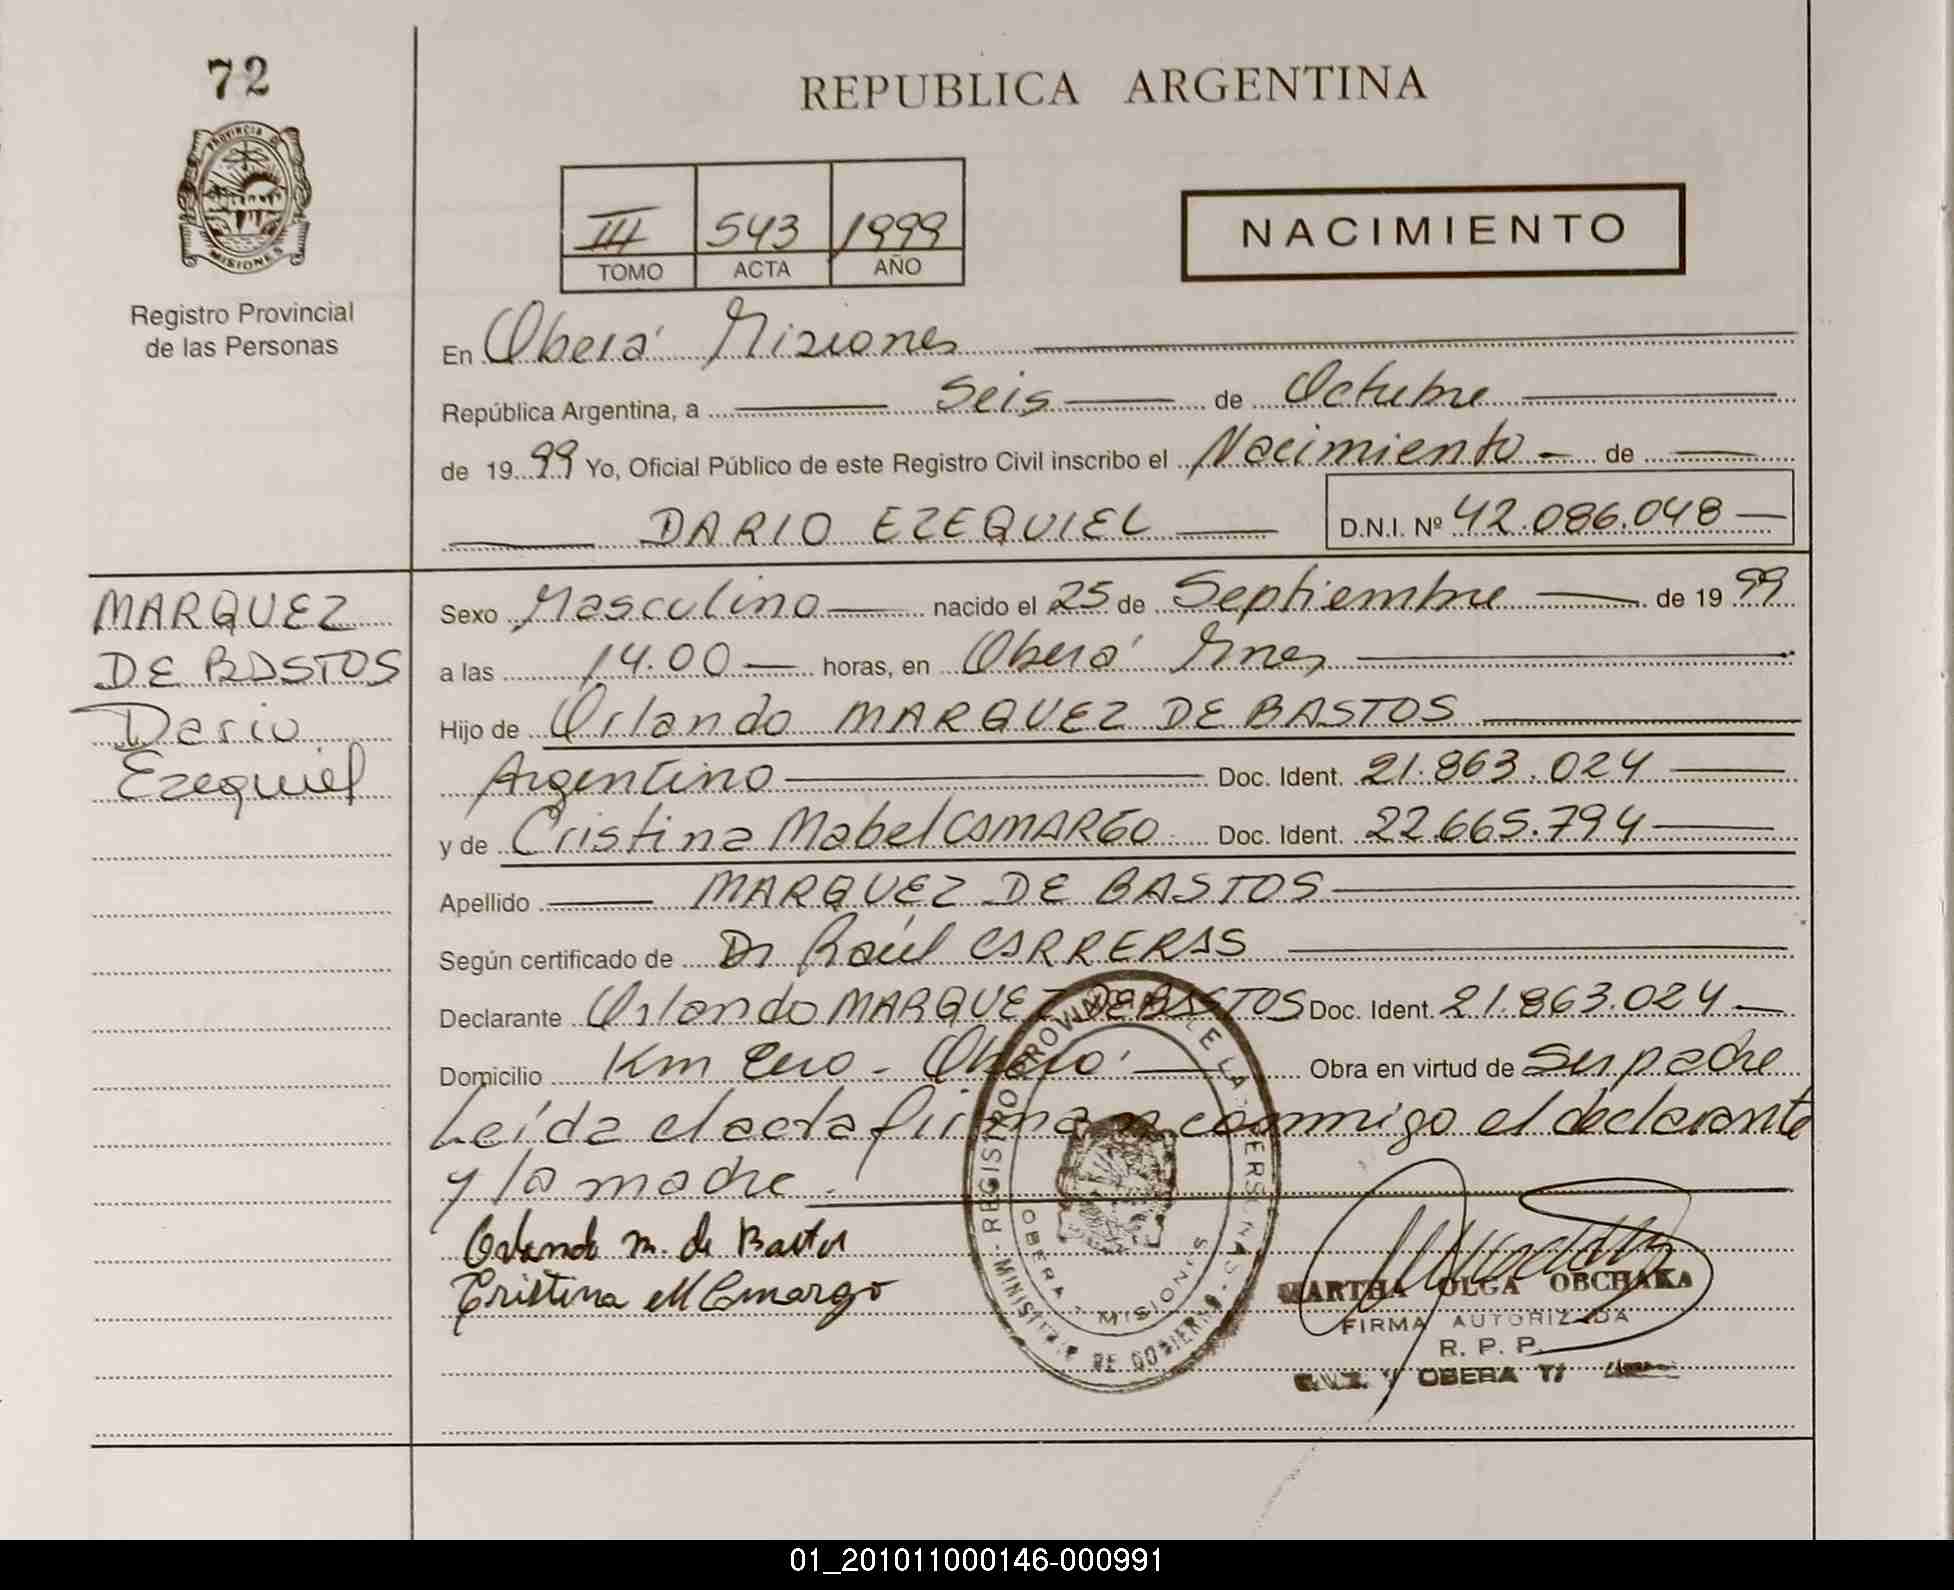 72
REPUBLICA ARGENTINA
PROVINCIA DE MISIONES
Registro Provincial
de las Personas
III 543 1999
TOMO ACTA AÑO
NACIMIENTO
En Oberá Misiones
República Argentina, a Seis de Octubre
de 1999 Yo, Oficial Público de este Registro Civil inscribo el Nacimiento de
DARIO EZEQUIEL D.N.I. Nº 42.086.048
MARQUEZ
DE BASTOS
Dario
Ezequiel
Sexo Masculino nacido el 25 de Septiembre de 1999
a las 14.00 horas, en Oberá Mnes
Hijo de Orlando MARQUEZ DE BASTOS
Argentino Doc. Ident. 21.863.024
y de Cristina Mabel CAMARGO Doc. Ident. 22.665.794
Apellido MARQUEZ DE BASTOS
Según certificado de Dr Raúl CARRERAS
Declarante Orlando MARQUEZ DE BASTOS Doc. Ident. 21.863.024
Domicilio Km Cero - Oberá Obra en virtud de Ser padre
Leída el acta firman conmigo el declarante
y la madre.
Orlando m. de Bastos
Cristina M Camargo
REGISTRO PROVINCIAL DE LAS PERSONAS - MINISTERIO DE GOBIERNO -
OBERA - MISIONES
MARTHA OLGA OBCHAKA
FIRMA AUTORIZADA
R. P. P.
OBERA
01_201011000146-000991